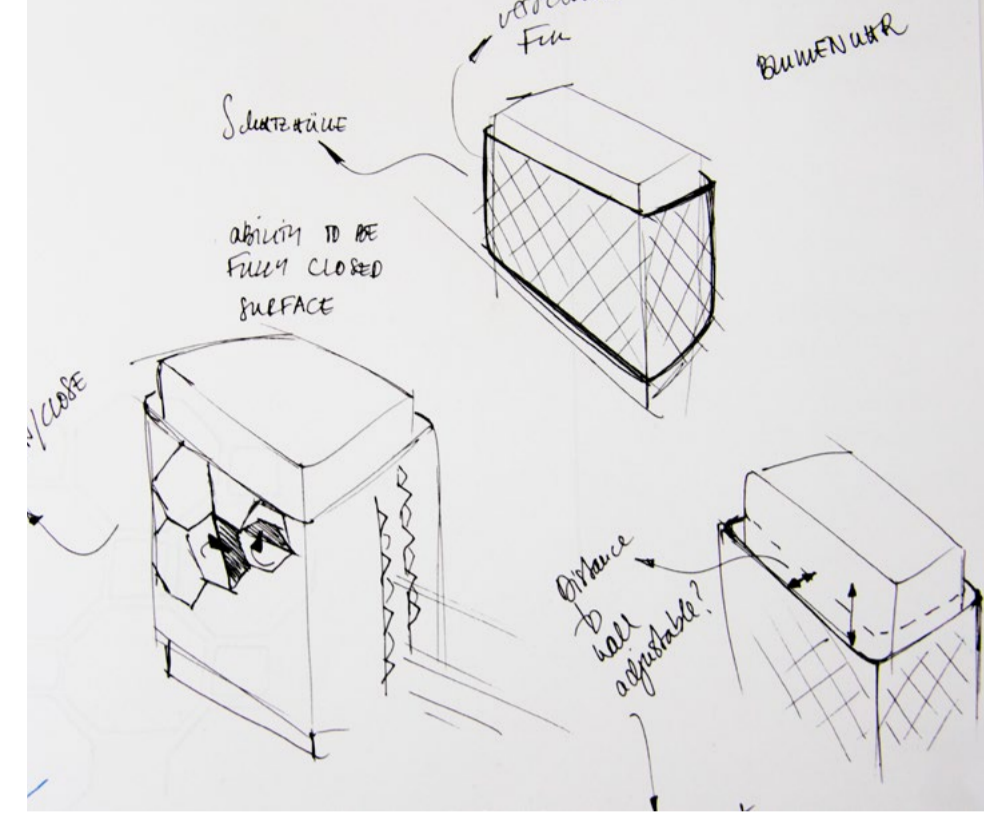 Fin
BLUMENUHR
SCHUTZHÜLLE
ability TO BE
FULLY CLOSED
SURFACE
/CLOSE
Distance
to
wall
adjustable?